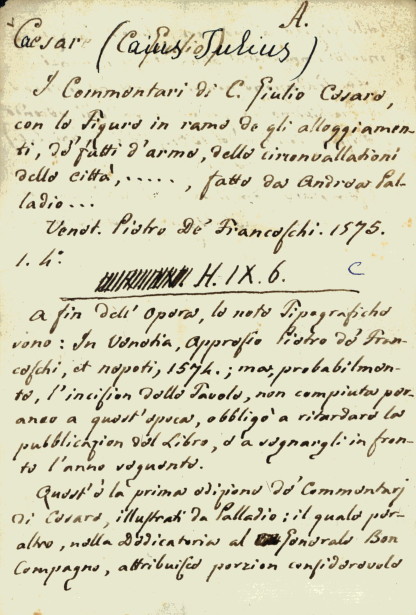 A.
Caesar (Caius Julius)
I Commentari di C. Giulio Cesare,
con le figure in rame de gli alloggiamen-
ti, de' fatti d'arme, delle circonvallationi
delle città, ....., fatte da Andrea Pal-
ladio...
Venet. Pietro De' Franceschi. 1575.
1. 4.°
H. IX. 6. C
A fin dell'Opera, le note Tipografiche
sono: In Venetia, appresso Pietro de' Fran-
ceschi, et nepoti, 1574.; ma, probabilmen-
te, l'incision delle Tavole, non compiuta per-
anco a quest'epoca, obbligò a ritardare la
pubblicazion del Libro, e a segnargli in fron-
te l'anno seguente.
Quest'è la prima edizione de' Commentarj
di Cesare, illustrati da Palladio; il quale per-
altro, nella Dedicatoria al Generale Bon
Compagno, attribuisce porzion considerevole